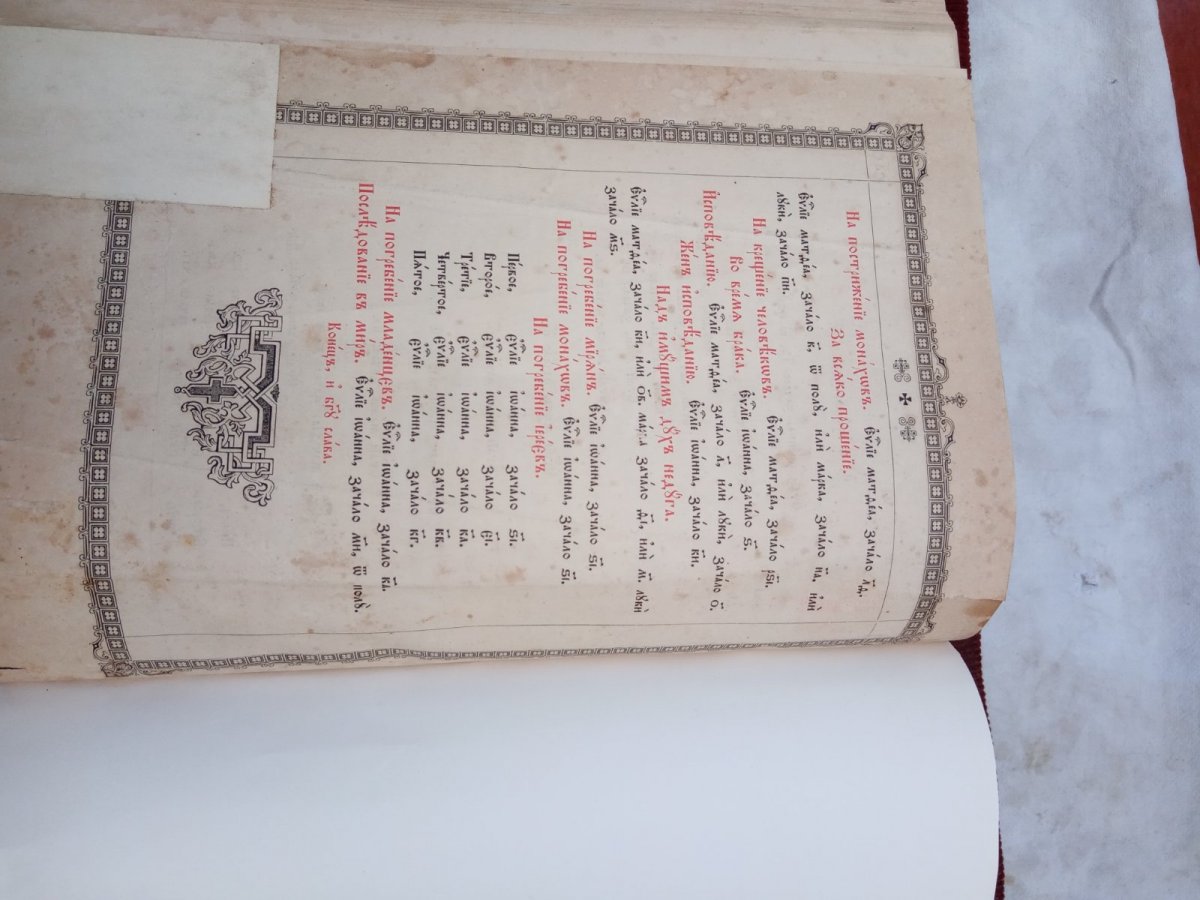 На постриже́нїе мона́хѡвъ. Єѵⷢ҇лїе матѳе́а, зача́ло л҃д.
За всѧ́ко проше́нїе.
Єѵⷢ҇лїе матѳе́а, зача́ло к҃, ѿ полꙋ̀, и҆лѝ ма́рка, зача́ло н҃а, и҆лѝ
лꙋкѝ, зача́ло н҃и.
На креще́нїе человѣ́кѡвъ. Єѵⷢ҇лїе матѳе́а, зача́ло рѕ҃і.
Во вре́мѧ бра́ка. Єѵⷢ҇лїе і҆ѡа́нна, зача́ло ѕ҃.
И҆сповѣ́данїю. Єѵⷢ҇лїе матѳе́а, зача́ло л҃, и҆лѝ лꙋкѝ, зача́ло о҃.
Же́нъ и҆сповѣ́данїю. Єѵⷢ҇лїе і҆ѡа́нна, зача́ло к҃и.
Над̾ имꙋ́щимъ дꙋ́хъ недꙋ́га.
Єѵⷢ҇лїе матѳе́а, зача́ло к҃и, и҆лѝ о҃в. ма́рка зача́ло д҃і, и҆лѝ м҃. лꙋкѝ
зача́ло м҃ѕ.
На погребе́нїе мїрѧ́нъ. Єѵⷢ҇лїе і҆ѡа́нна, зача́ло ѕ҃і.
На погребе́нїе мона́хѡвъ. Єѵⷢ҇лїе і҆ѡа́нна, зача́ло ѕ҃і.
На погребе́нїе і҆ере́євъ.
Пе́рвое, є҆ѵⷢ҇лїе і҆ѡа́нна, зача́ло ѕ҃і.
Второ́е, є҆ѵⷢ҇лїе і҆ѡа́нна, зача́ло є҃і.
Тре́тїе, є҆ѵⷢ҇лїе і҆ѡа́нна, зача́ло к҃а.
Четве́ртое, є҆ѵⷢ҇лїе і҆ѡа́нна, зача́ло к҃в.
Пѧ́тое, є҆ѵⷢ҇лїе і҆ѡа́нна, зача́ло к҃г.
На погребе́нїе младе́нцєвъ. Єѵⷢ҇лїе і҆ѡа́нна, зача́ло к҃а.
Послѣ́дованїе въ ми́ръ. Єѵⷢ҇лїе і҆ѡа́нна, зача́ло м҃и, ѿ полꙋ̀.
Коне́цъ, и҆ бг҃ꙋ сла́ва.